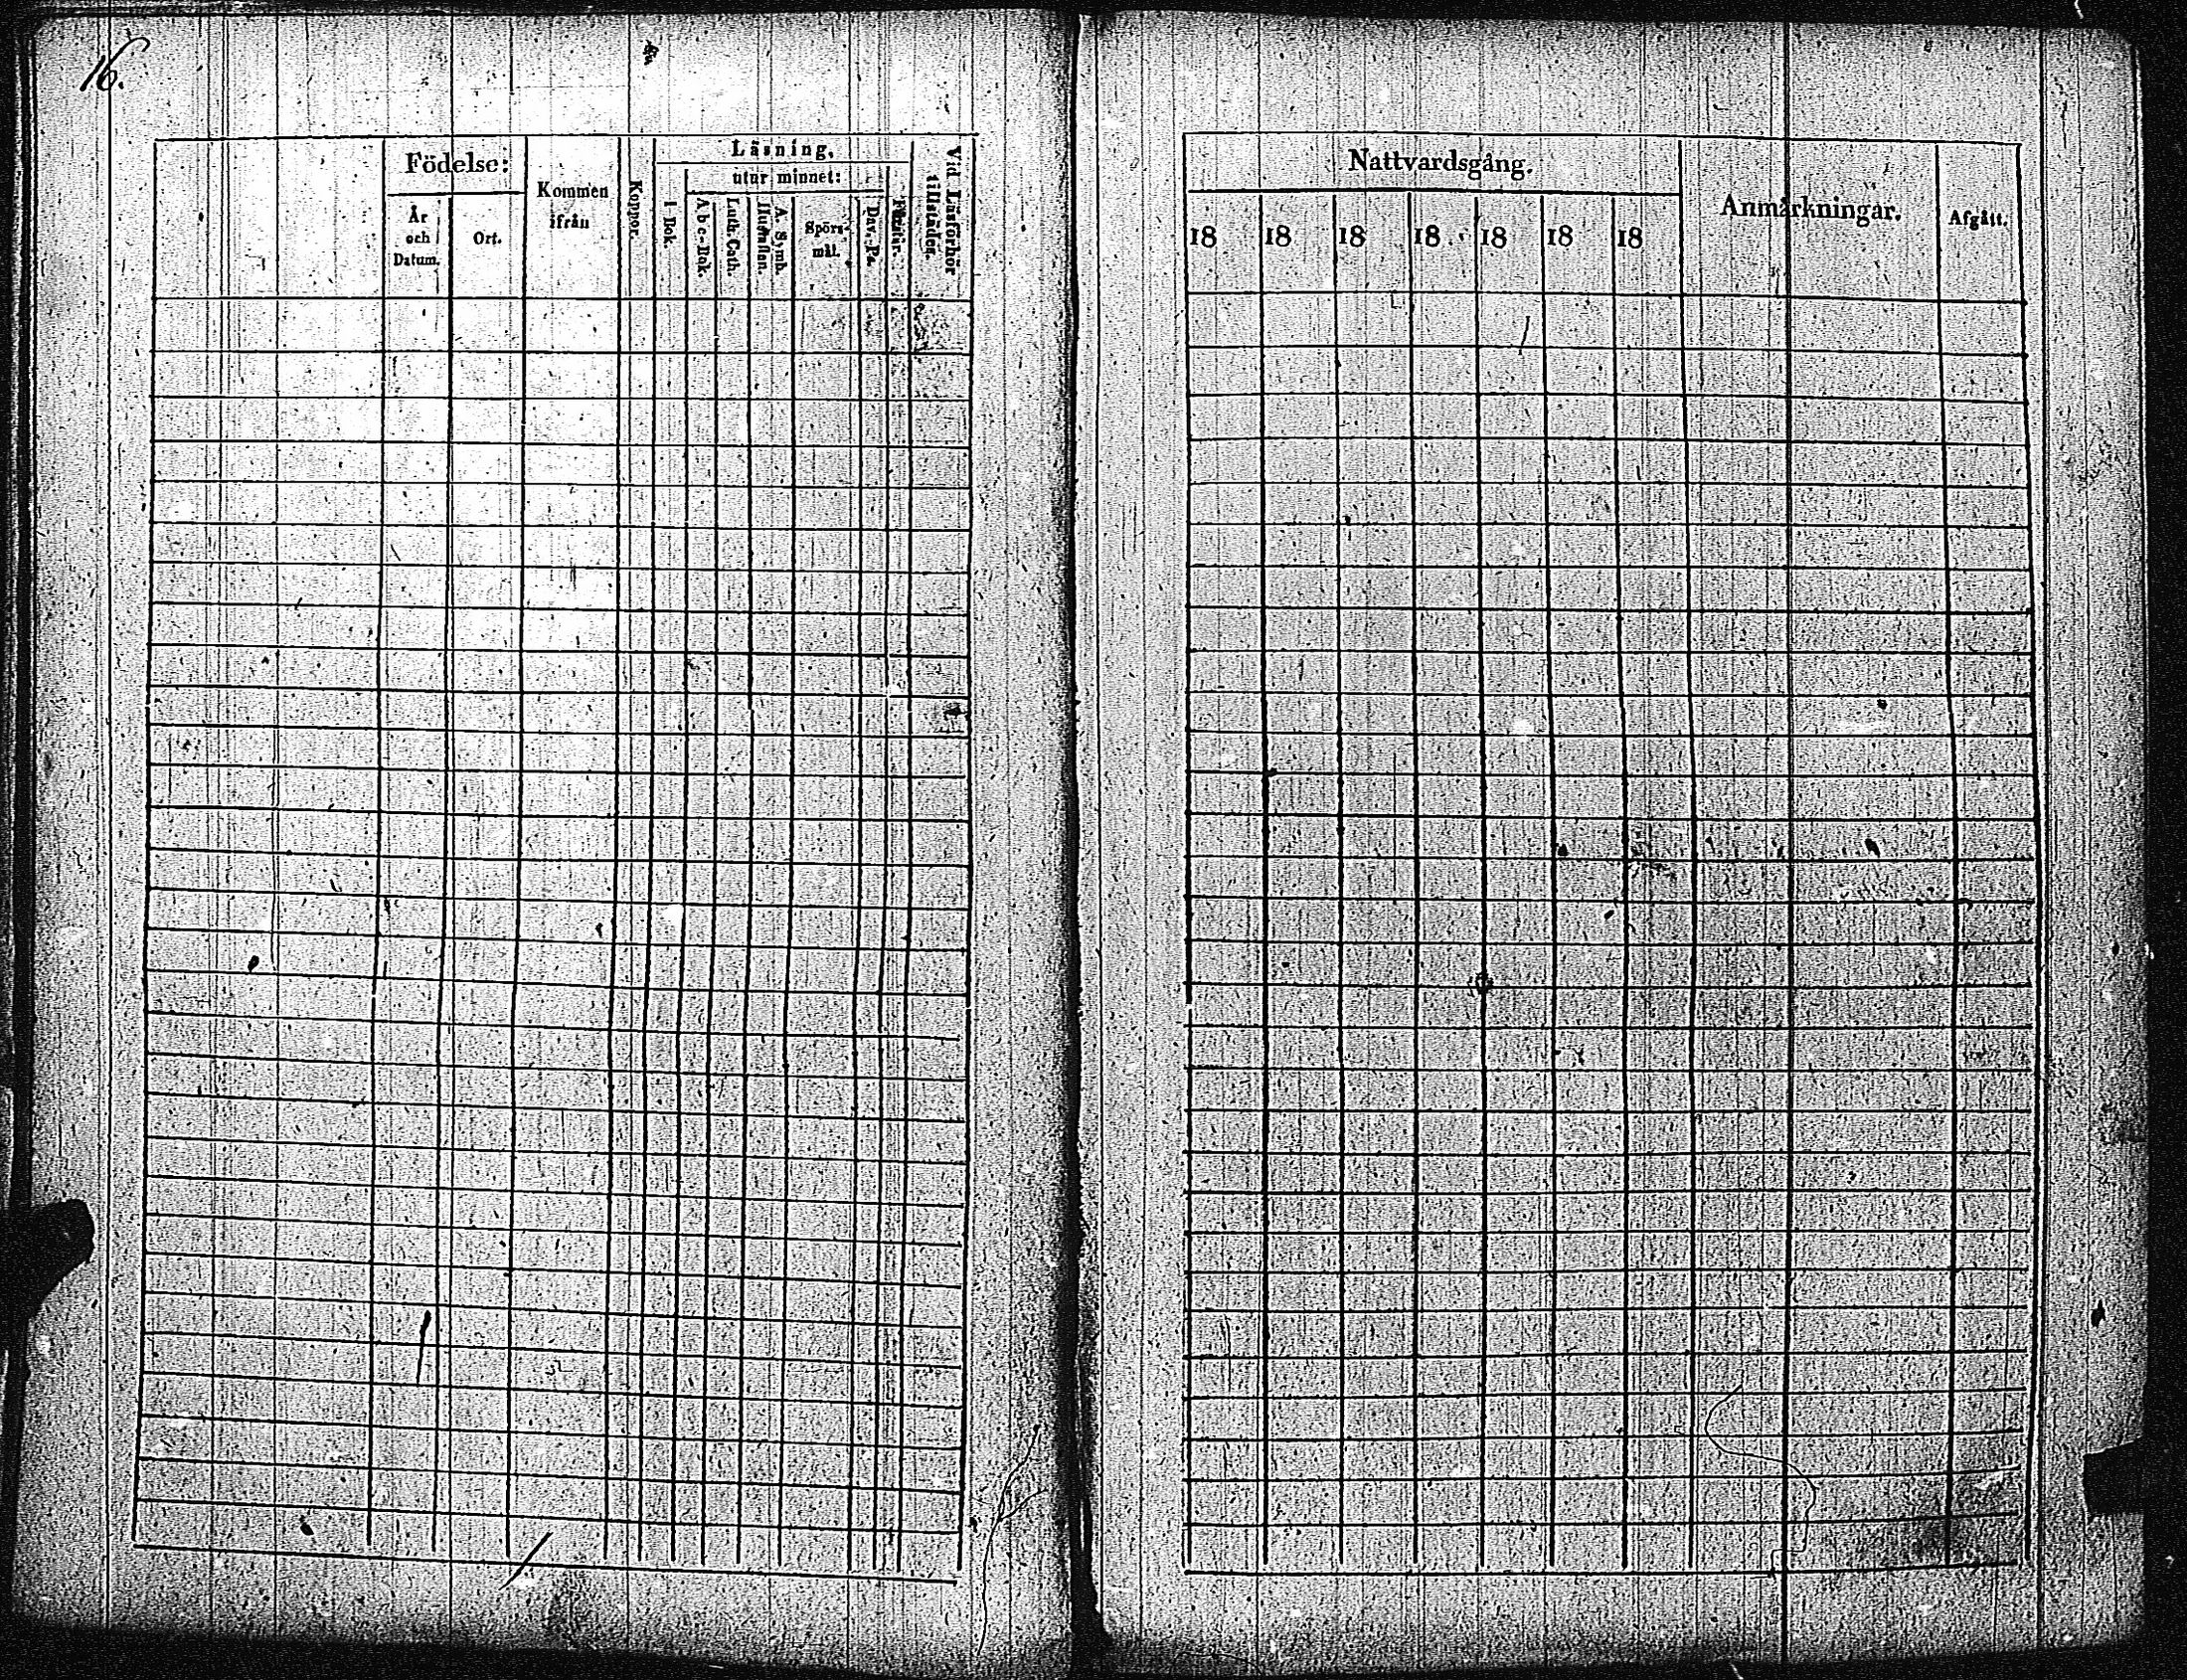 16.
Födelse:
År
och
Datum.
Ort.
Kommen
ifrån
Koppor.
Läsning,
utur minnet:
I Bok.
A b c-Bok.
Luth. Cath.
A. Symb.
Hustaflan.
Spörs-
mål.
Dav. Ps.
Vid Läsförhör
tillstädes.
Nattvardsgång.
18 18 18 18 18 18 18
Anmärkningar.
Afgått.